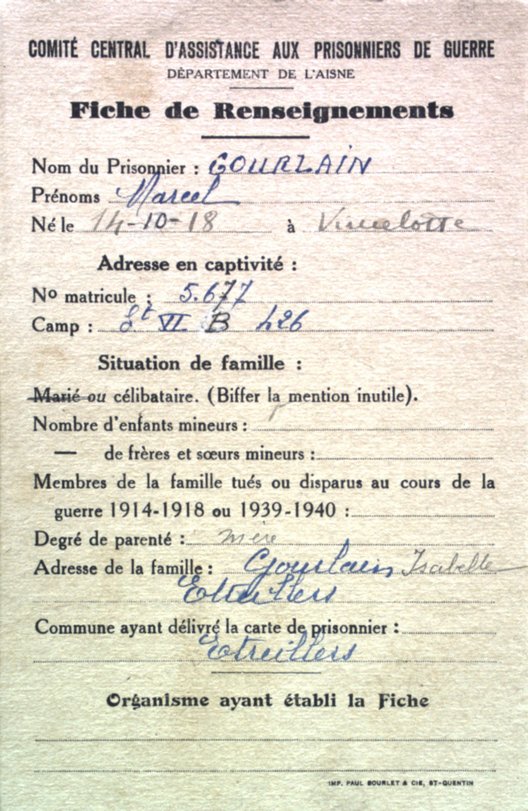 COMITÉ CENTRAL D'ASSISTANCE AUX PRISONNIERS DE GUERRE
DÉPARTEMENT DE L'AISNE
Fiche de Renseignements
Nom du Prisonnier : GOURLAIN
Prénoms Marcel
Né le 14-10-18 à
Adresse en captivité :
No matricule : 5.677
Camp : St VI B 426
Situation de famille :
Marié ou célibataire. (Biffer la mention inutile).
Nombre d'enfants mineurs :
— de frères et sœurs mineurs :
Membres de la famille tués ou disparus au cours de la
guerre 1914-1918 ou 1939-1940 :
Degré de parenté : mère
Adresse de la famille : Gourlain Isabelle
Etreillers
Commune ayant délivré la carte de prisonnier :
Etreillers
Organisme ayant établi la Fiche
IMP. PAUL BOURLET & CIE, ST-QUENTIN